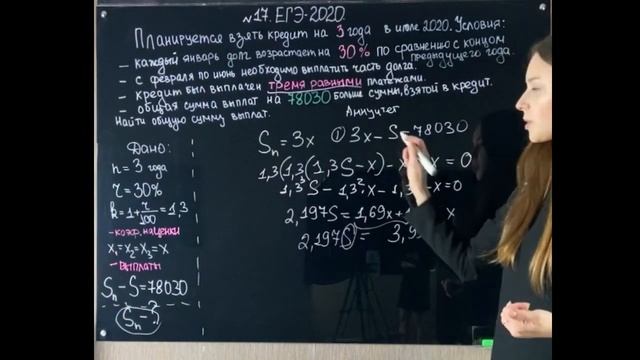 №17. ЕГЭ-2020.
Планируется взять кредит на 3 года в июле 2020. Условия:
- каждый январь долг возрастает на 30% по сравнению с концом предыдущего года.
- с февраля по июнь необходимо выплатить часть долга.
- кредит был выплачен тремя равными платежами.
- общая сумма выплат на 78030 больше суммы, взятой в кредит.
Найти общую сумму выплат.
Аннуитет
Дано:
n = 3 года
r = 30%
k = 1 + r/100 = 1,3
- коэф. наценки
x₁ = x₂ = x₃ = x
- выплаты
Sₙ - S = 78030
Sₙ - ?
Sₙ = 3x ① 3x - S = 78030
1,3(1,3(1,3S - x) - x = 0
1,3³S - 1,3²x - 1,3 - x = 0
2,197S = 1,69x + 1 x
2,197S = 3,9